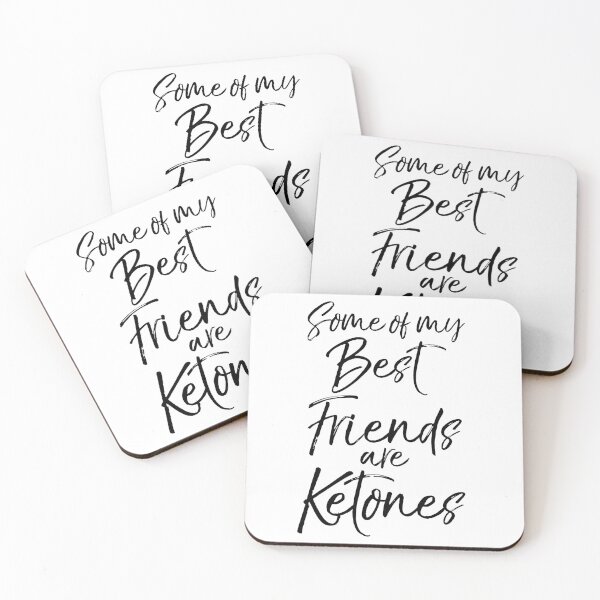 Some of my
Best
Some of my
Best
Friends
are
Some of my
Best
Friends
are
Ketones
Some of my
Best
Friends
are
Ketones